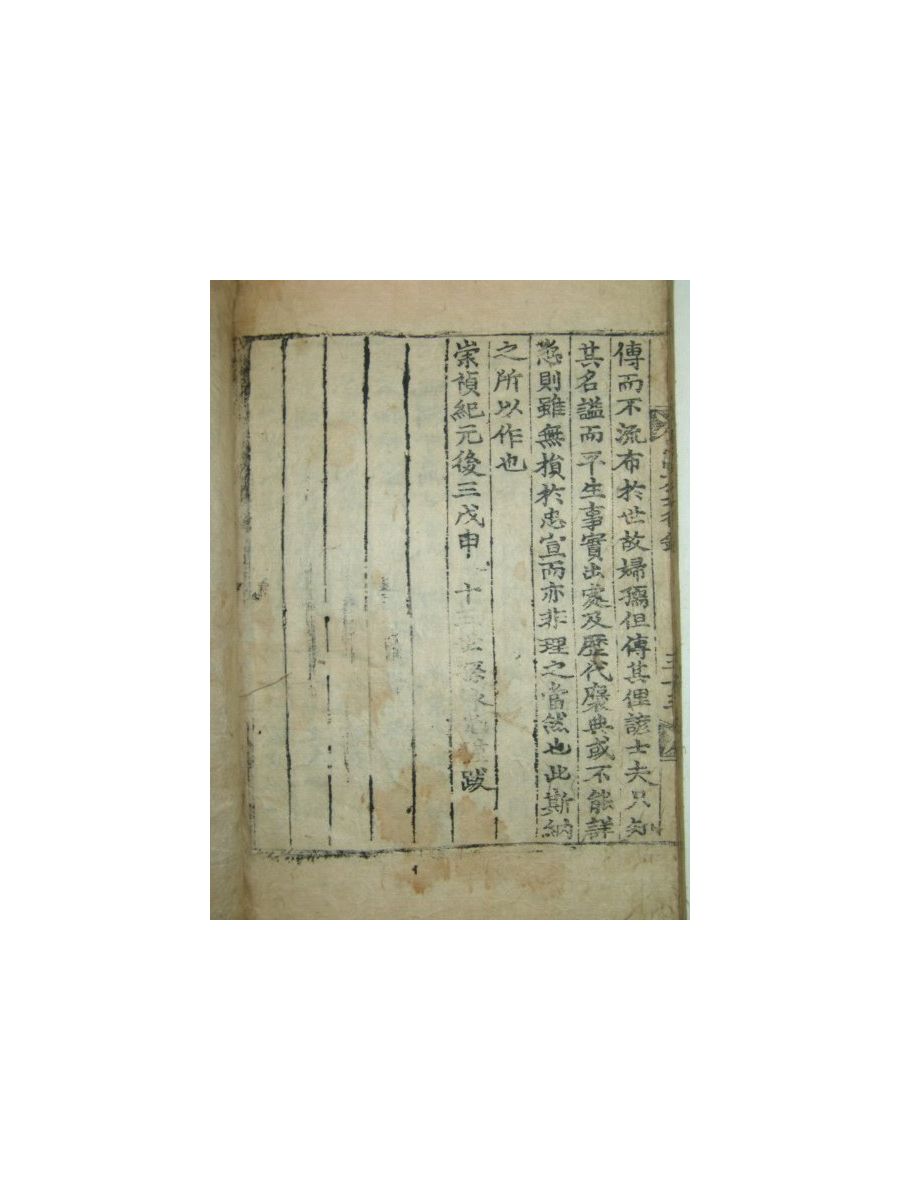 傳而不流布於世故婦孺但傳其俚諺士夫只知
其名謚而平生事實出處及歷代褒典或不能詳
悉則雖無損於忠宣而亦非理之當然也此斯納
之所以作也
崇禎紀元後三戊申 十 世孫 跋